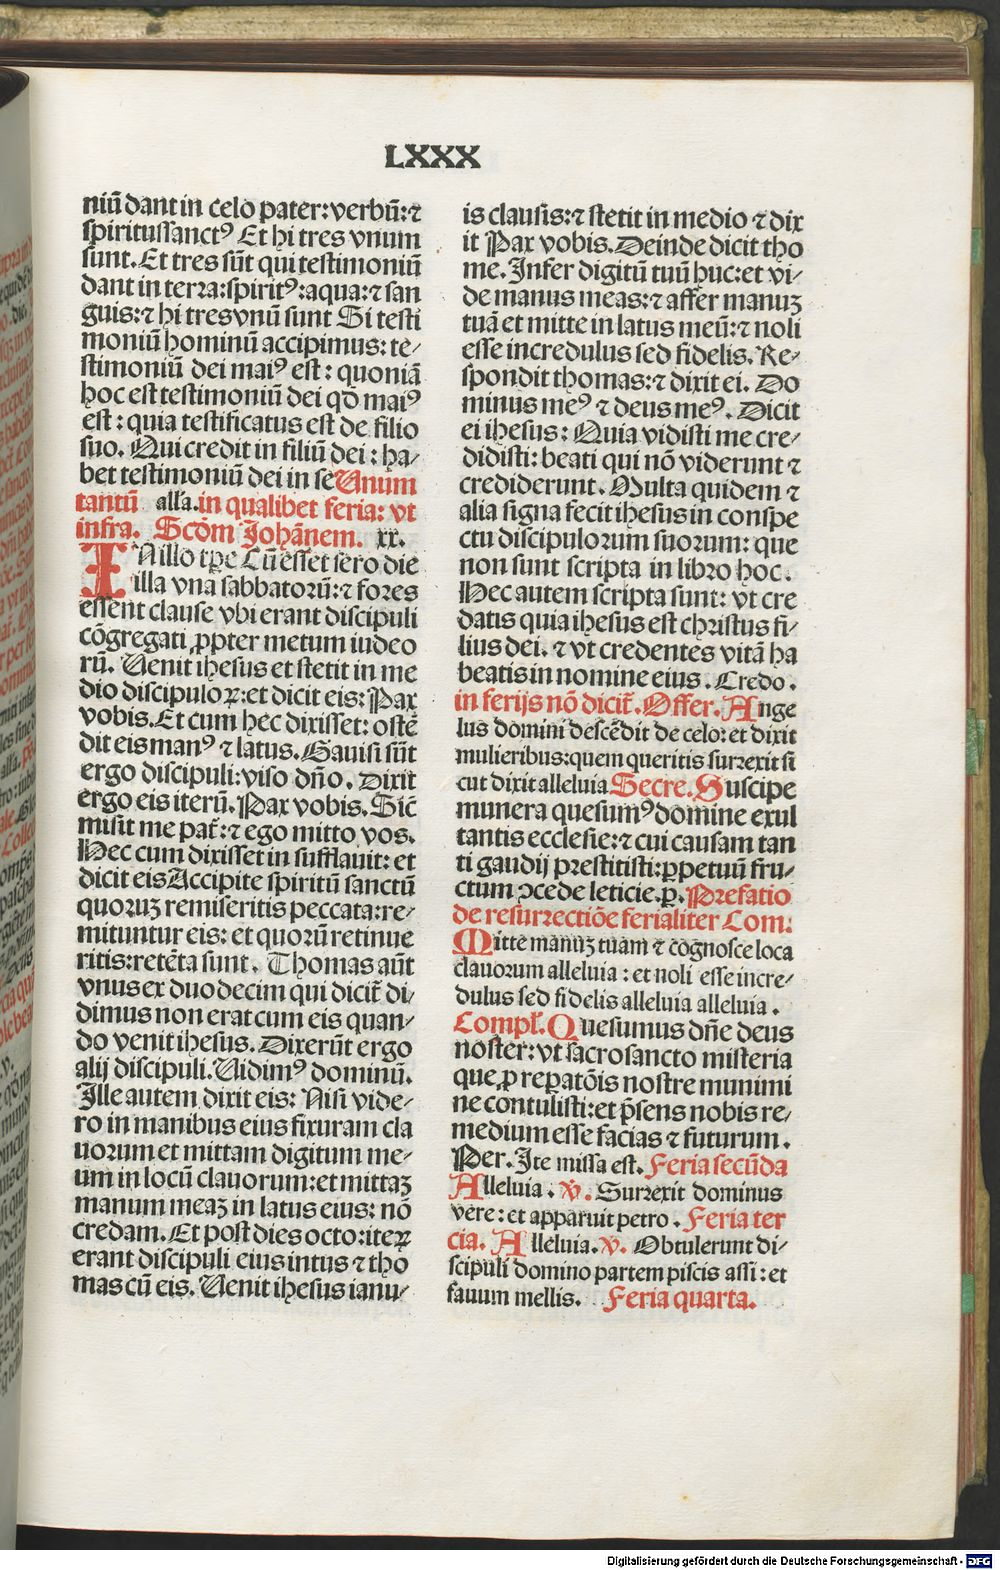 LXXX
niū dant in celo pater: verbū: ⁊
spiritussanctꝰ Et hi tres vnum
sunt. Et tres sūt qui testimoniū
dant in terra: spiritꝰ: aqua: ⁊ san
guis: ⁊ hi tres vnū sunt Si testi
moniū hominū accipimus: te⸗
stimoniū dei maiꝰ est: quoniā
hoc est testimoniū dei qd̄ maiꝰ
est: quia testificatus est de filio
suo. Qui credit in filiū dei: ha⸗
bet testimoniū dei in se Vnum
tantū alla. in qualibet feria: vt
infra. Scd̄m Johānem. xx.
IN illo tp̄e Cū esset sero die
illa vna sabbatorū: ⁊ fores
essent clause vbi erant discipuli
cōgregati ꝓpter metum iudeo
rū. Uenit ihesus et stetit in me
dio discipuloꝝ: et dicit eis: Pax
vobis. Et cum hec dixisset: ostē
dit eis manꝰ ⁊ latus. Gauisi sūt
ergo discipuli: viso dn̄o. Dixit
ergo eis iterū. Pax vobis. Sic̄
misit me pat̄: ⁊ ego mitto vos.
Hec cum dixisset in sufflauit: et
dicit eis Accipite spiritū sanctū
quoruꝫ remiseritis peccata: re⸗
mituntur eis: et quorū retinue
ritis: retēta sunt. Thomas aūt
vnus ex duodecim qui dicit̄ di⸗
dimus non erat cum eis quan⸗
do venit ihesus. Dixerūt ergo
alij discipuli. Uidimꝰ dominū.
Ille autem dixit eis: Nisi vide⸗
ro in manibus eius fixuram cla
uorum et mittam digitum me⸗
um in locū clauorum: et mittaꝫ
manum meaꝫ in latus eius: nō
credam. Et post dies octo: iteꝝ
erant discipuli eius intus ⁊ tho
mas cū eis. Uenit ihesus ianu⸗
is clausis: ⁊ stetit in medio ⁊ dix
it Pax vobis. Deinde dicit tho
me. Infer digitū tuū huc: et vi⸗
de manus meas: ⁊ affer manuꝫ
tuā et mitte in latus meū: ⁊ noli
esse incredulus sed fidelis. Re⸗
spondit thomas: ⁊ dixit ei. Do
minus meꝰ ⁊ deus meꝰ. Dicit
ei ihesus: Quia vidisti me cre⸗
didisti: beati qui nō viderunt ⁊
crediderunt. Multa quidem ⁊
alia signa fecit ihesus in conspe
ctu discipulorum suorum: que
non sunt scripta in libro hoc.
Hec autem scripta sunt: vt cre
datis quia ihesus est christus fi⸗
lius dei. ⁊ vt credentes vitā ha
beatis in nomine eius. Credo.
in ferijs nō dicit̄. Offer. Ange
lus domini descēdit de celo: et dixit
mulieribus: quem queritis surrexit si
cut dixit alleluia Secre. Suscipe
munera quesumꝰ domine exul
tantis ecclesie: ⁊ cui causam tan
ti gaudij prestitisti: ꝑpetuū fru⸗
ctum ꝯcede leticie. ꝑ. Prefatio
de resurrectiōe ferialiter Com:
Mitte manuꝫ tuam ⁊ cōgnosce loca
clauorum alleluia: et noli esse incre⸗
dulus sed fidelis alleluia alleluia.
Compl̄. Quesumus dn̄e deus
noster: vt sacrosancto misteria
que ꝓ reꝑatōis nostre munimi
ne contulisti: et p̄sens nobis re⸗
medium esse facias ⁊ futurum.
Per. Ite missa est. Feria secūda
Alleluia. ℣. Surrexit dominus
vere: et apparuit petro. Feria ter
cia. Alleluia. ℣. Obtulerunt di⸗
scipuli domino partem piscis assi: et
fauum mellis. Feria quarta.
Digitalisierung gefördert durch die Deutsche Forschungsgemeinschaft - DFG